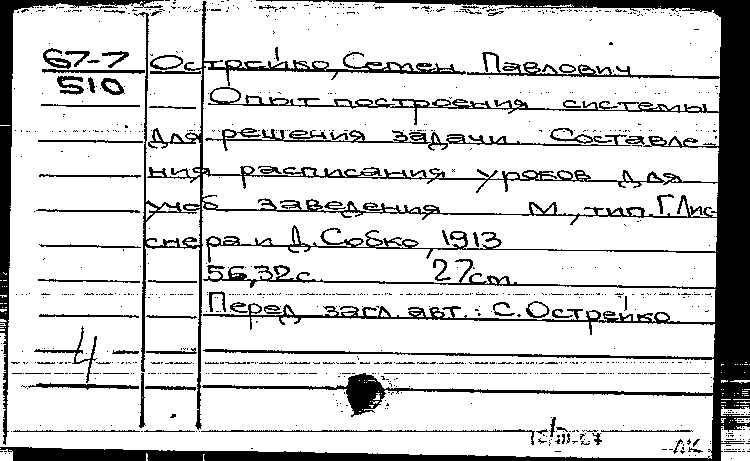 67-7
510
Острейко, Семен Павлович
Опыт построения системы
для решения задачи. Составле-
ния расписания уроков для
учеб. заведения М., тип. Г. Лис-
снера и Д. Собко, 1913
56, 32 с. 27 cm.
Перед загл. авт.: С. Острейко
4